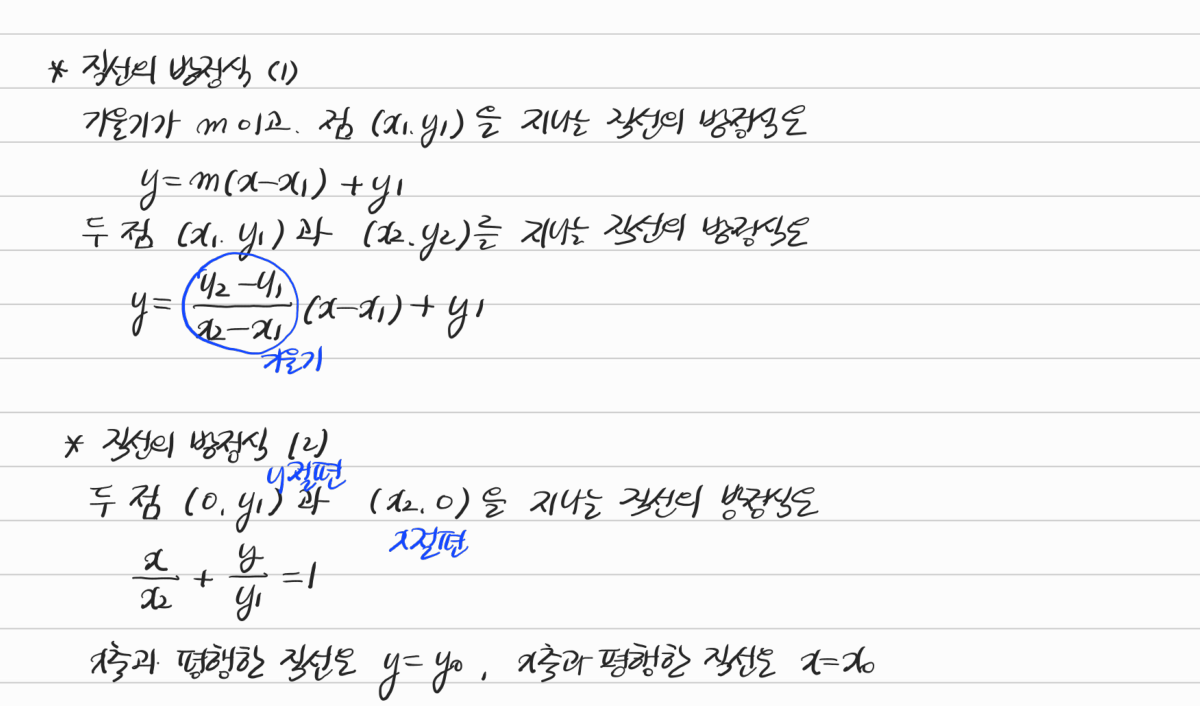 * 직선의 방정식 (1)
기울기가 m이고. 점 (x₁, y₁)을 지나는 직선의 방정식은
y = m(x-x₁) + y₁
두 점 (x₁, y₁)과 (x₂, y₂)를 지나는 직선의 방정식은
y = \frac{y₂-y₁}{x₂-x₁}(x-x₁) + y₁
기울기
* 직선의 방정식 (2)
y절편
두 점 (0, y₁)과 (x₂, 0)을 지나는 직선의 방정식은
x절편
\frac{x}{x₂} + \frac{y}{y₁} = 1
x축과 평행한 직선은 y = y₀, x축과 평행한 직선은 x = x₀